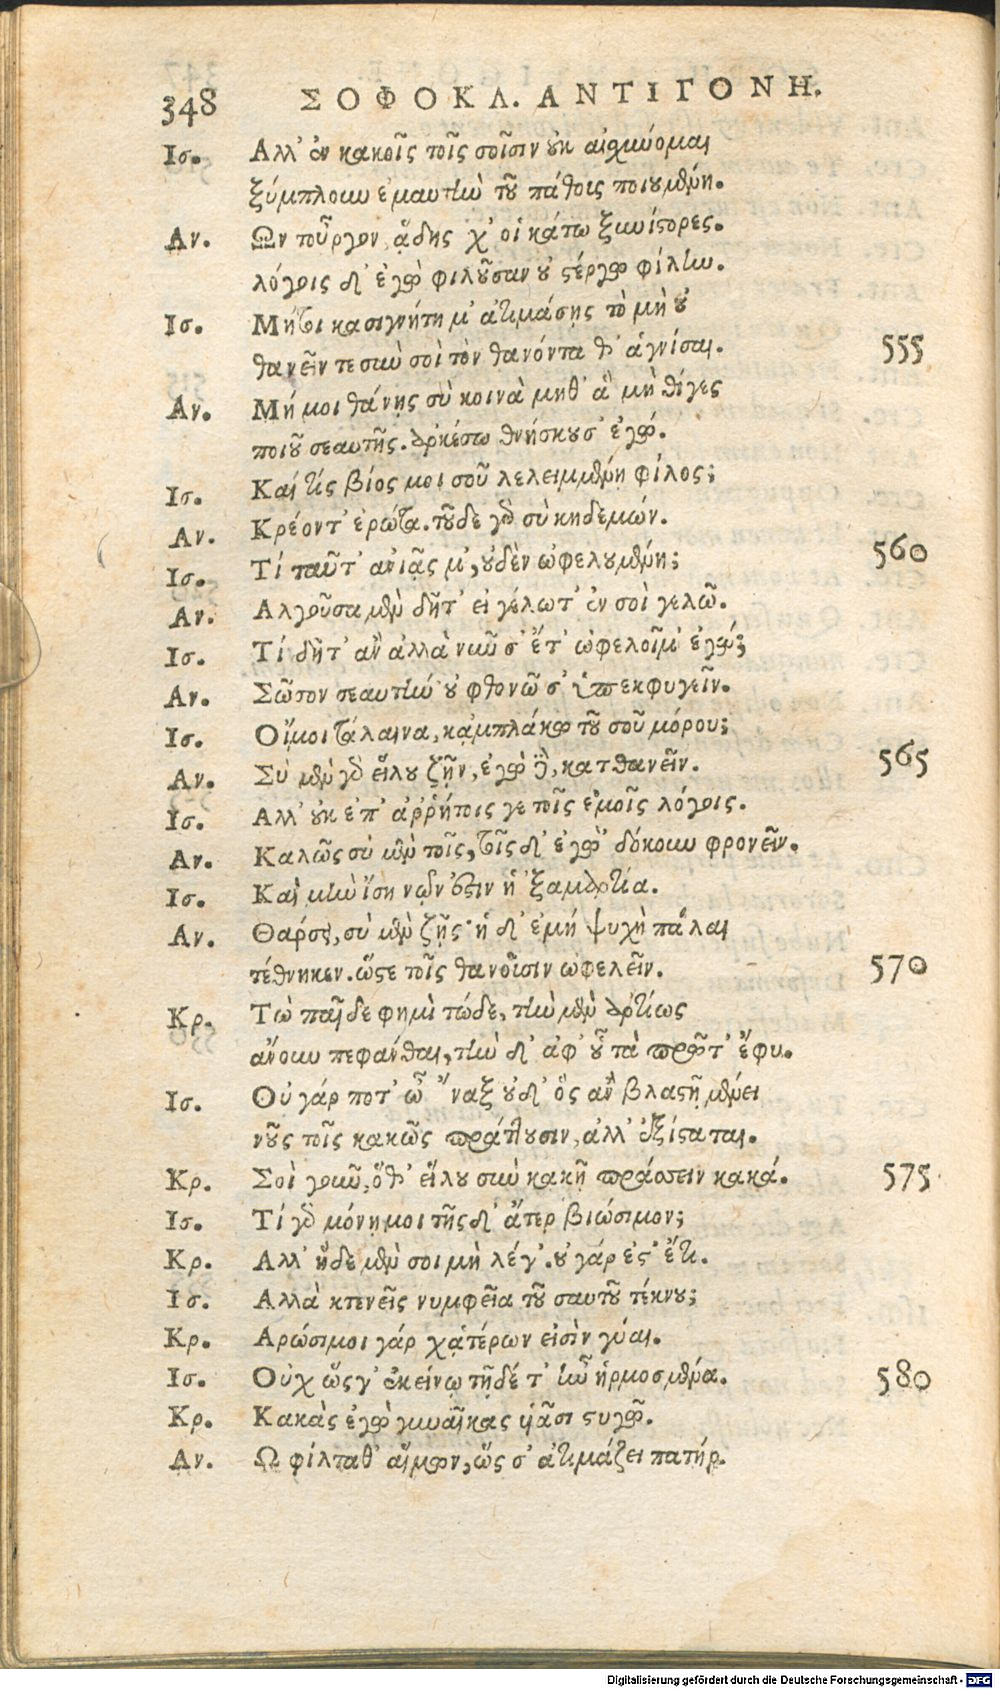 348 ΣΟΦΟΚΛ. ΑΝΤΙΓΟΝΗ.
Ισ. Αλλ' ἐν κακοῖς τοῖς σοῖσιν οὐκ αἰσχύνομαι
ξύμπλουν ἐμαυτὴν τοῦ πάθοις ποιουμένη.
Αν. Ων τοὖργον, ᾅδης χ' οἱ κάτω ξυνίστορες.
λόγοις δ' ἐγὼ φιλοῦσαν οὐ στέργω φίλην.
Ισ. Μήτοι κασιγνήτη μ' ἀτιμάσῃς τὸ μὴ οὐ
θανεῖν τε σὺν σοὶ τὸν θανόντα θ' ἁγνίσαι. 555
Αν. Μή μοι θάνῃς σὺ κοινὰ μηθ' ἃ μὴ θίγες
ποιοῦ σεαυτῆς. ἀρκέσω θνήσκουσ' ἐγώ.
Ισ. Καὶ τίς βίος μοι σοῦ λελειμμένῃ φίλος;
Αν. Κρέοντ' ἐρώτα. τοῦδε γὰρ σὺ κηδεμών.
Ισ. Τί ταῦτ' ἀνιᾷς μ', οὐδὲν ὠφελουμένη; 560
Αν. Αλγοῦσα μὲν δῆτ' εἰ γέλωτ' ἐν σοὶ γελῶ.
Ισ. Τί δῆτ' ἂν ἀλλὰ νῦν σ' ἔτ' ὠφελοῖμ' ἐγώ;
Αν. Σῶσον σεαυτὴν οὐ φθονῶ σ' ὑπεκφυγεῖν.
Ισ. Οἴμοι τάλαινα, κᾀμπλάκω τοῦ σοῦ μόρου;
Αν. Σὺ μὲν γὰρ εἵλου ζῇν, ἐγὼ δὲ, κατθανεῖν. 565
Ισ. Αλλ' οὐκ ἐπ' ἀῤῥήτοις γε τοῖς ἐμοῖς λόγοις.
Αν. Καλῶς σὺ μὲν τοῖς, τοῖς δ' ἐγὼ 'δόκουν φρονεῖν.
Ισ. Καὶ μὴν ἴση νῷν ἐστιν ἡ 'ξαμαρτία.
Αν. Θάρσει, σὺ μὲν ζῇς· ἡ δ' ἐμή ψυχὴ πάλαι
τέθνηκεν. ὥστε τοῖς θανοῦσιν ὠφελεῖν. 570
Κρ. Τὼ παῖδε φημὶ τώδε, τὴν μὲν ἀρτίως
ἄνουν πεφάνθαι, τὴν δ' ἀφ' οὗ τὰ πρῶτ' ἔφυ.
Ισ. Οὐ γάρ ποτ' ὦ 'ναξ οὐδ' ὃς ἂν βλαστῇ μένει
νοῦς τοῖς κακῶς πράττουσιν, ἀλλ' ἐξίσταται.
Κρ. Σοὶ γοῦν, ὅθ' εἵλου σὺν κακῇ πράσσειν κακά. 575
Ισ. Τί γὰρ μόνῃ μοι τῆς δ' ἄτερ βιώσιμον;
Κρ. Αλλ' ἥδε μὲν σοι μὴ λέγ'. οὐ γάρ ἐστ' ἔτι.
Ισ. Αλλὰ κτενεῖς νυμφεῖα τοῦ σαυτοῦ τέκνου;
Κρ. Αρώσιμοι γάρ χᾁτέρων εἰσὶν γύαι.
Ισ. Οὐχ ὥς γ' ἐκείνῳ τῇδέ τ' ἦν ἡρμοσμένα. 580
Κρ. Κακὰς ἐγὼ γυναῖκας υἱᾶσι στυγῶ.
Αν. Ω φίλταθ' αἵμων, ὥς σ' ἀτιμάζει πατήρ.
Digitalisierung gefördert durch die Deutsche Forschungsgemeinschaft - DFG